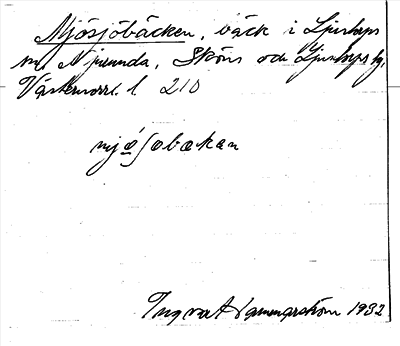 Mjösjöbäcken, bäck i Ljustorps
sn, Njurunda, Sköns och Ljustorps tg,
Västernorrl. l. 210
mjósobækan
Ingvart Vammarström 1932